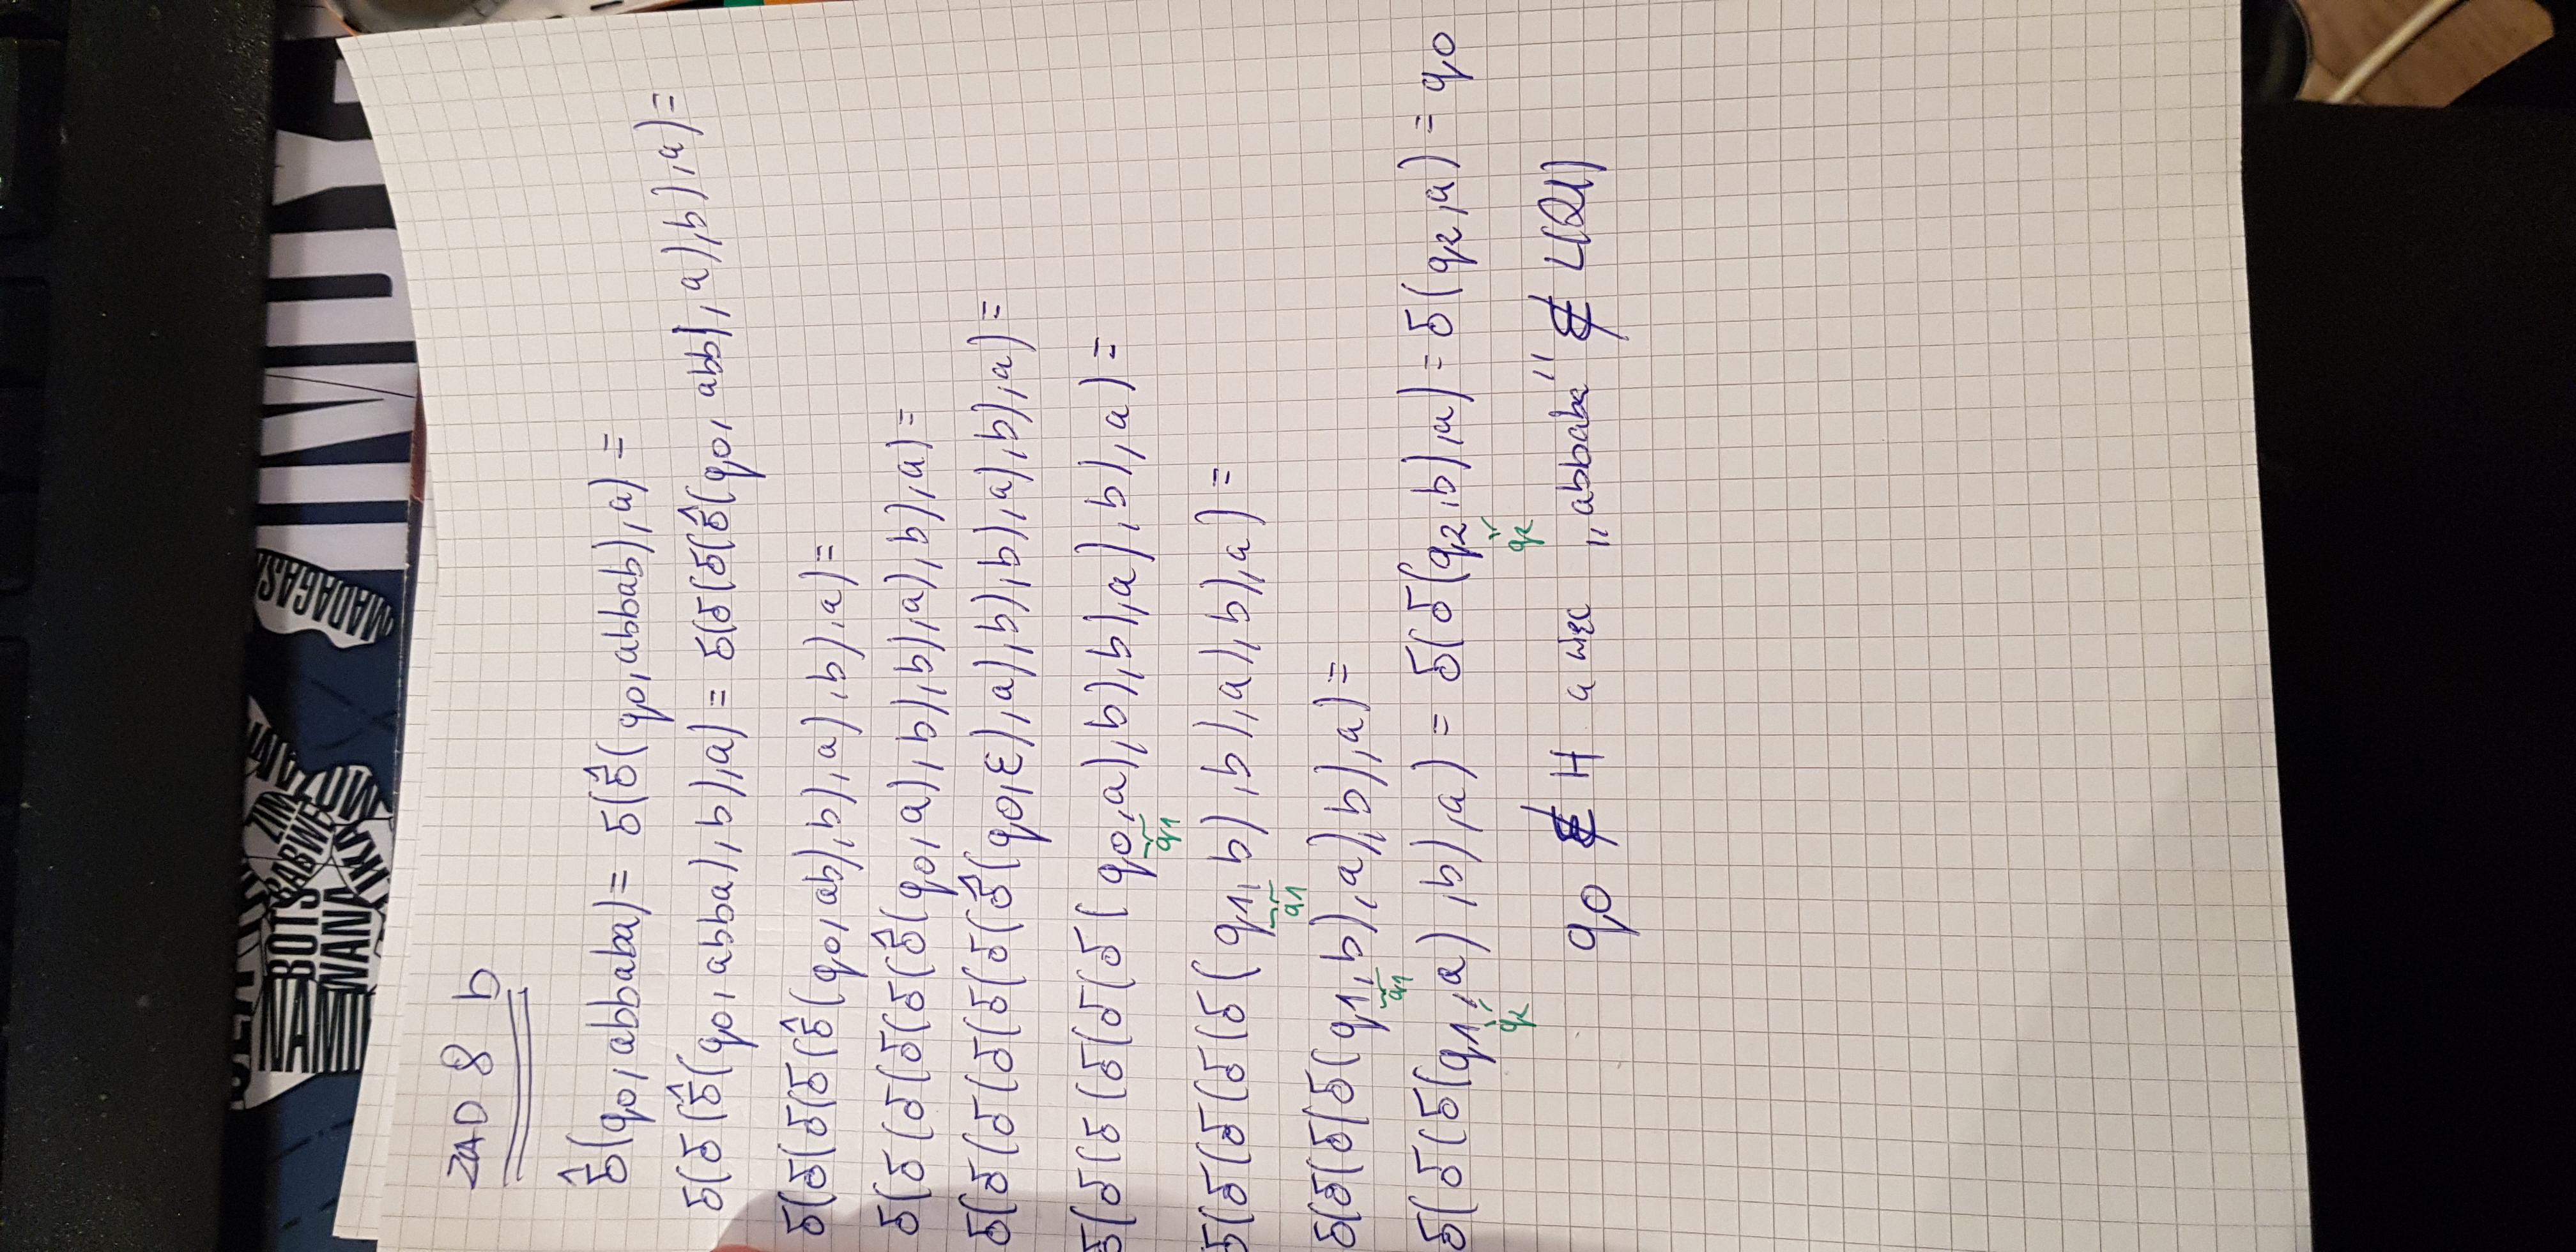 NAMI
BOTS
WANA
ZIM
BABWE
MADAGASK
INDY
ZAD 8 b
δ̂(q0, abbaba) = δ(δ̂(q0, abbab), a) =
δ(δ(δ̂(q0, abba), b), a) = δ(δ(δ(δ̂(q0, abb), a), b), a) =
δ(δ(δ(δ(δ̂(q0, ab), b), a), b), a) =
δ(δ(δ(δ(δ(δ̂(q0, a), b), b), a), b), a) =
δ(δ(δ(δ(δ(δ(δ̂(q0, ε), a), b), b), a), b), a) =
δ(δ(δ(δ(δ(δ(q0, a), b), b), a), b), a) =
q1
δ(δ(δ(δ(δ(q1, b), b), a), b), a) =
q1
δ(δ(δ(δ(q1, b), a), b), a) =
q1
δ(δ(δ(q1, a), b), a) = δ(δ(q2, b), a) = δ(q2, a) = q0
q2 q2
q0 ∉ H a więc „abbaba" ∉ L(𝔄)